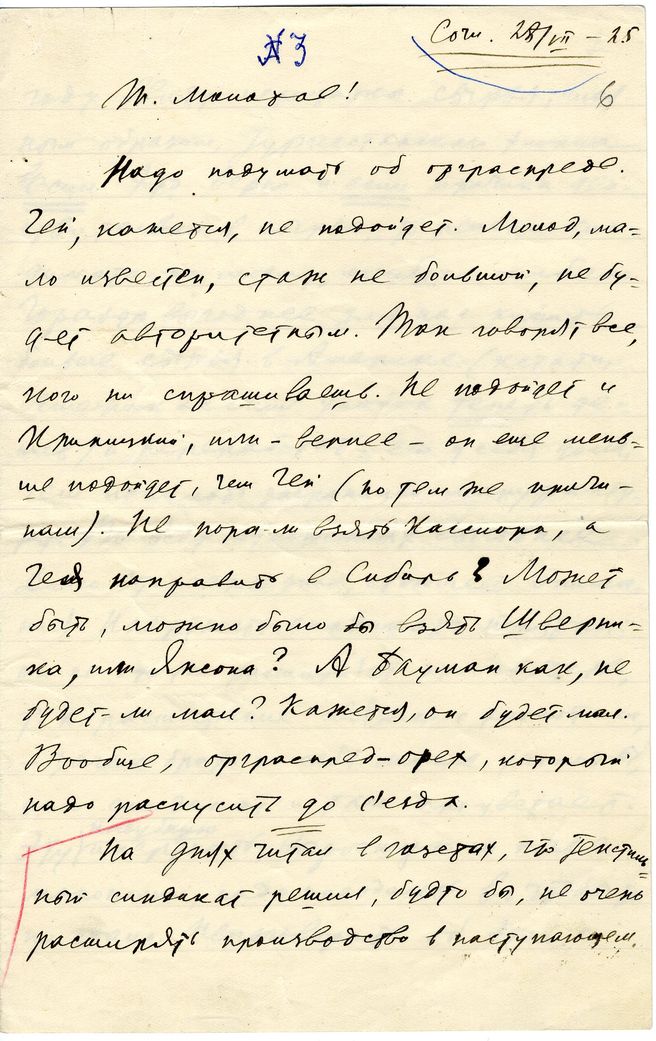 № 3
Сочи. 28/VII – 25
6
Т. Молотов!
Надо подумать об орграспреде.
Гей, кажется, не подойдет. Молод, ма-
ло известен, стаж не большой, не бу-
дет авторитетным. Так говорят все,
кого ни спрашиваешь. Не подойдет и
Криницкий, или – вернее – он еще мень-
ше подойдет, чем Гей (по тем же причи-
нам). Не пора-ли взять Кассиора, а
Гея направить в Сибирь? Может
быть, можно было бы взять Шверни-
ка, или Янсона? А Бауман как, не
будет-ли мал? Кажется, он будет мал.
Вообще, орграспред – орех, который
надо раскусить до с'езда.
На днях читал в газетах, что Текстиль-
ный синдикат решил, будто бы, не очень
расширять производство в наступающем